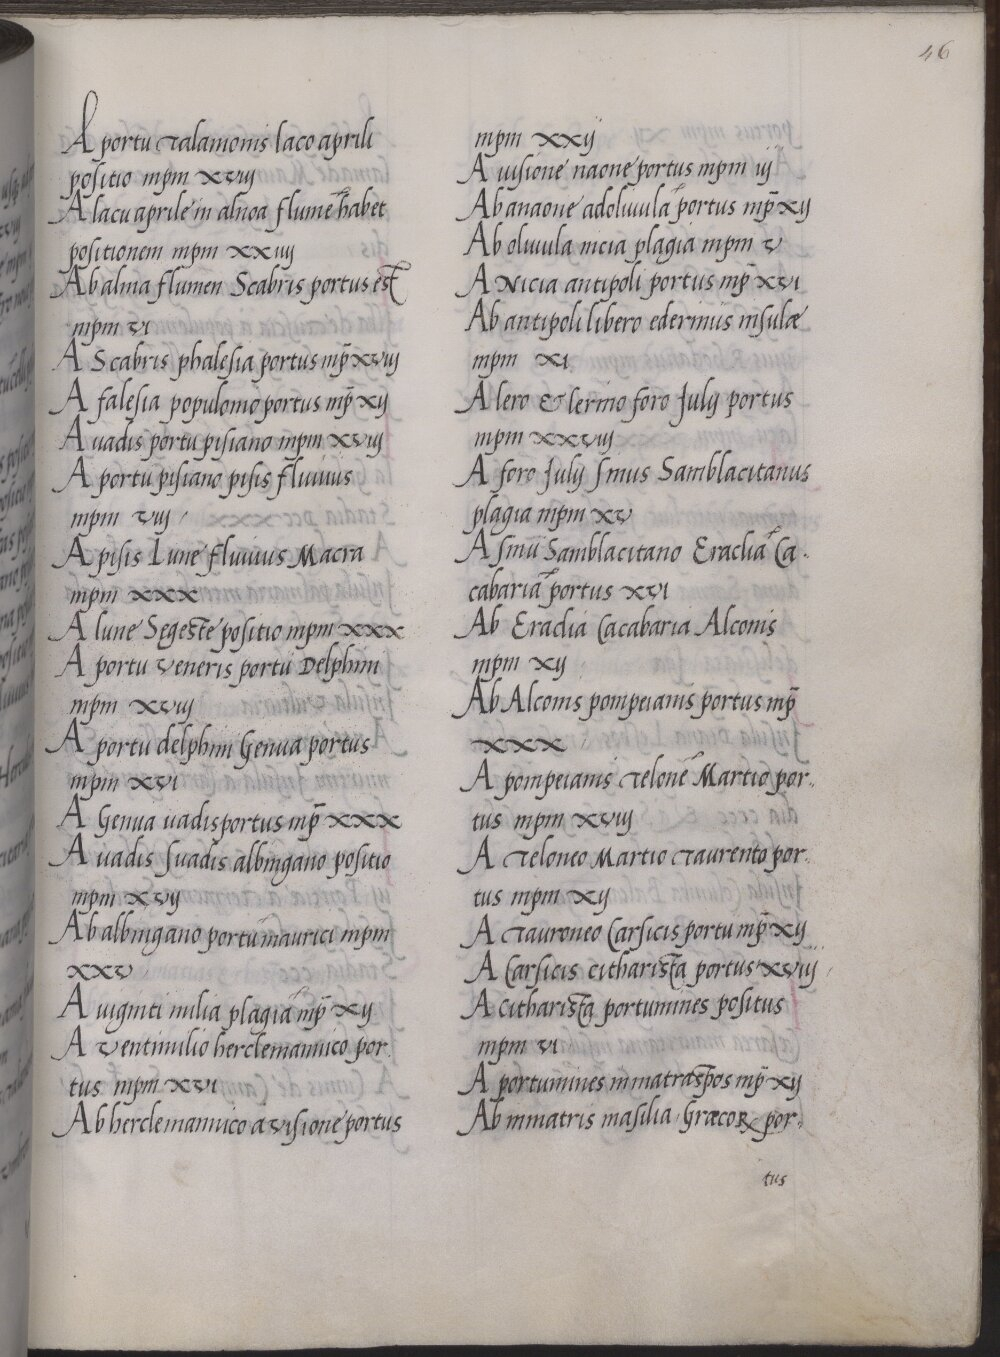 46
A portu Talamonis laco aprili
positio mpm xviij
A lacu aprile in alnoa flume habet
positionem mpm xxiiij
Ab alma flumen Scabris portus est
mpm vi
A Scabris phalesia portus mp̄ xviij
A falesia populonio portus mp̄ xij
A uadis portu pisiano mpm xviij
A portu pisiano pisis fluuius
mpm viij
A pisis Lune fluuius Macra
mpm xxx
A lune Segeste positio mpm xxx
A portu veneris portu Delphini
mpm xviij
A portu delphini Genua portus
mpm xvi
A Genua uadis portus mp̄ xxx
A uadis suadis albingano positio
mpm xvij
Ab albingano portu maurici mpm
xxv
A uiginti milia plagia mp̄ xij
A ventimilio herclemannico por
tus mpm xvi
Ab herclemannico a visione portus
mpm xxij
A uisione naone portus mpm iij
Ab anaone adoliuula portus mp̄ xij
Ab oliuula nicia plagia mpm v
A Nicia antipoli portus mp̄ xvi
Ab antipoli libero ederimiis insulæ
mpm xi
A lero & lerino foro Julij portus
mpm xxviij
A foro Julij sinus Samblacitanus
plagia mpm xv
A sinu Samblacitano Eraclia Ca
cabaria portus xvi
Ab Eraclia Cacabaria Alconis
mpm xij
Ab Alconis pompeianis portus mp̄
xxx
A pompeianis Telone Martio por
tus mpm xviij
A Teloneo Martio Taurento por
tus mpm xij
A Tauroneo Carsicis portu mp̄ xij
A Carsicis citharista portus xviij
A citharista portumines positus
mpm vi
A portumines inmatraspos mp̄ xij
Ab inmatris masilia Græcoꝝ por
tus